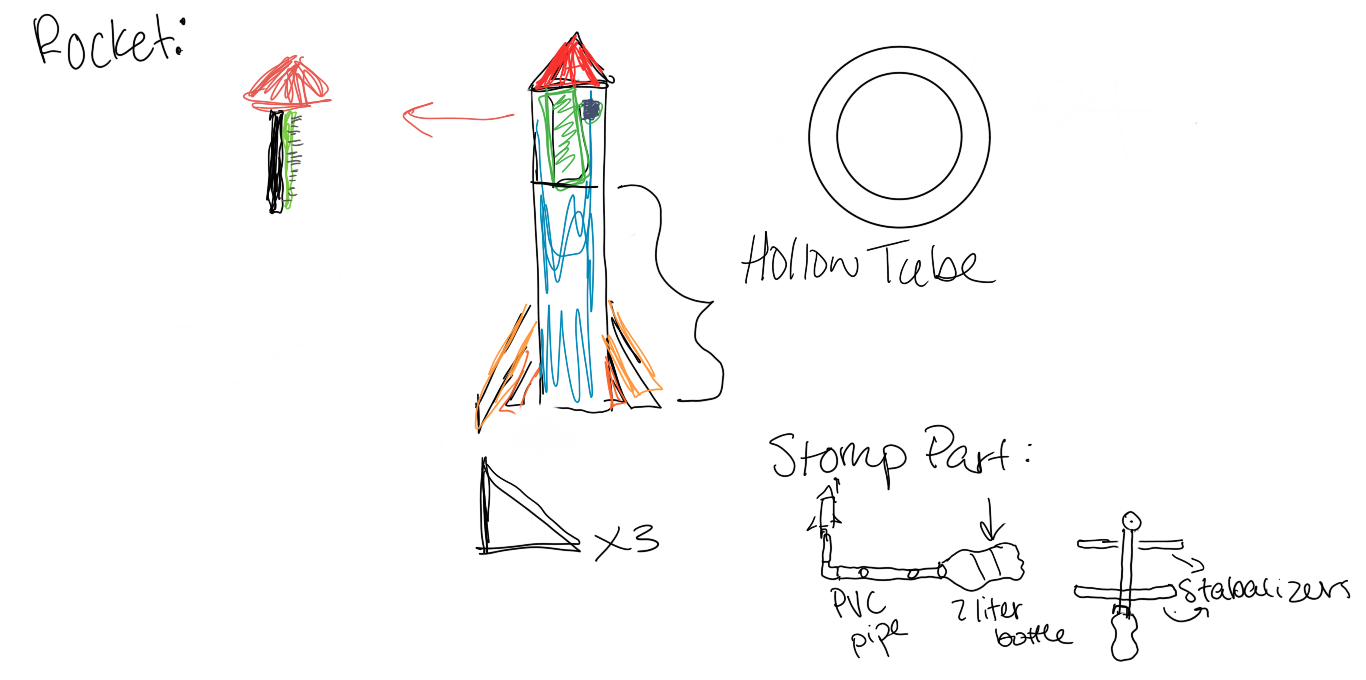 Rocket:
Hollow Tube
x3
Stomp Part:
PVC
pipe
2 liter
bottle
Stabalizers